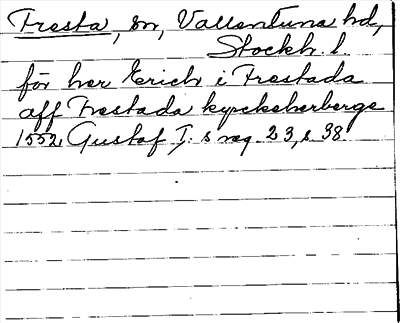 Fresta, sn, Vallentuna hd,
Stockh. l.
för her Erich i Frestada
aff Frestada kyrckeherberge
1552 Gustaf I:s reg. 23, s. 38.